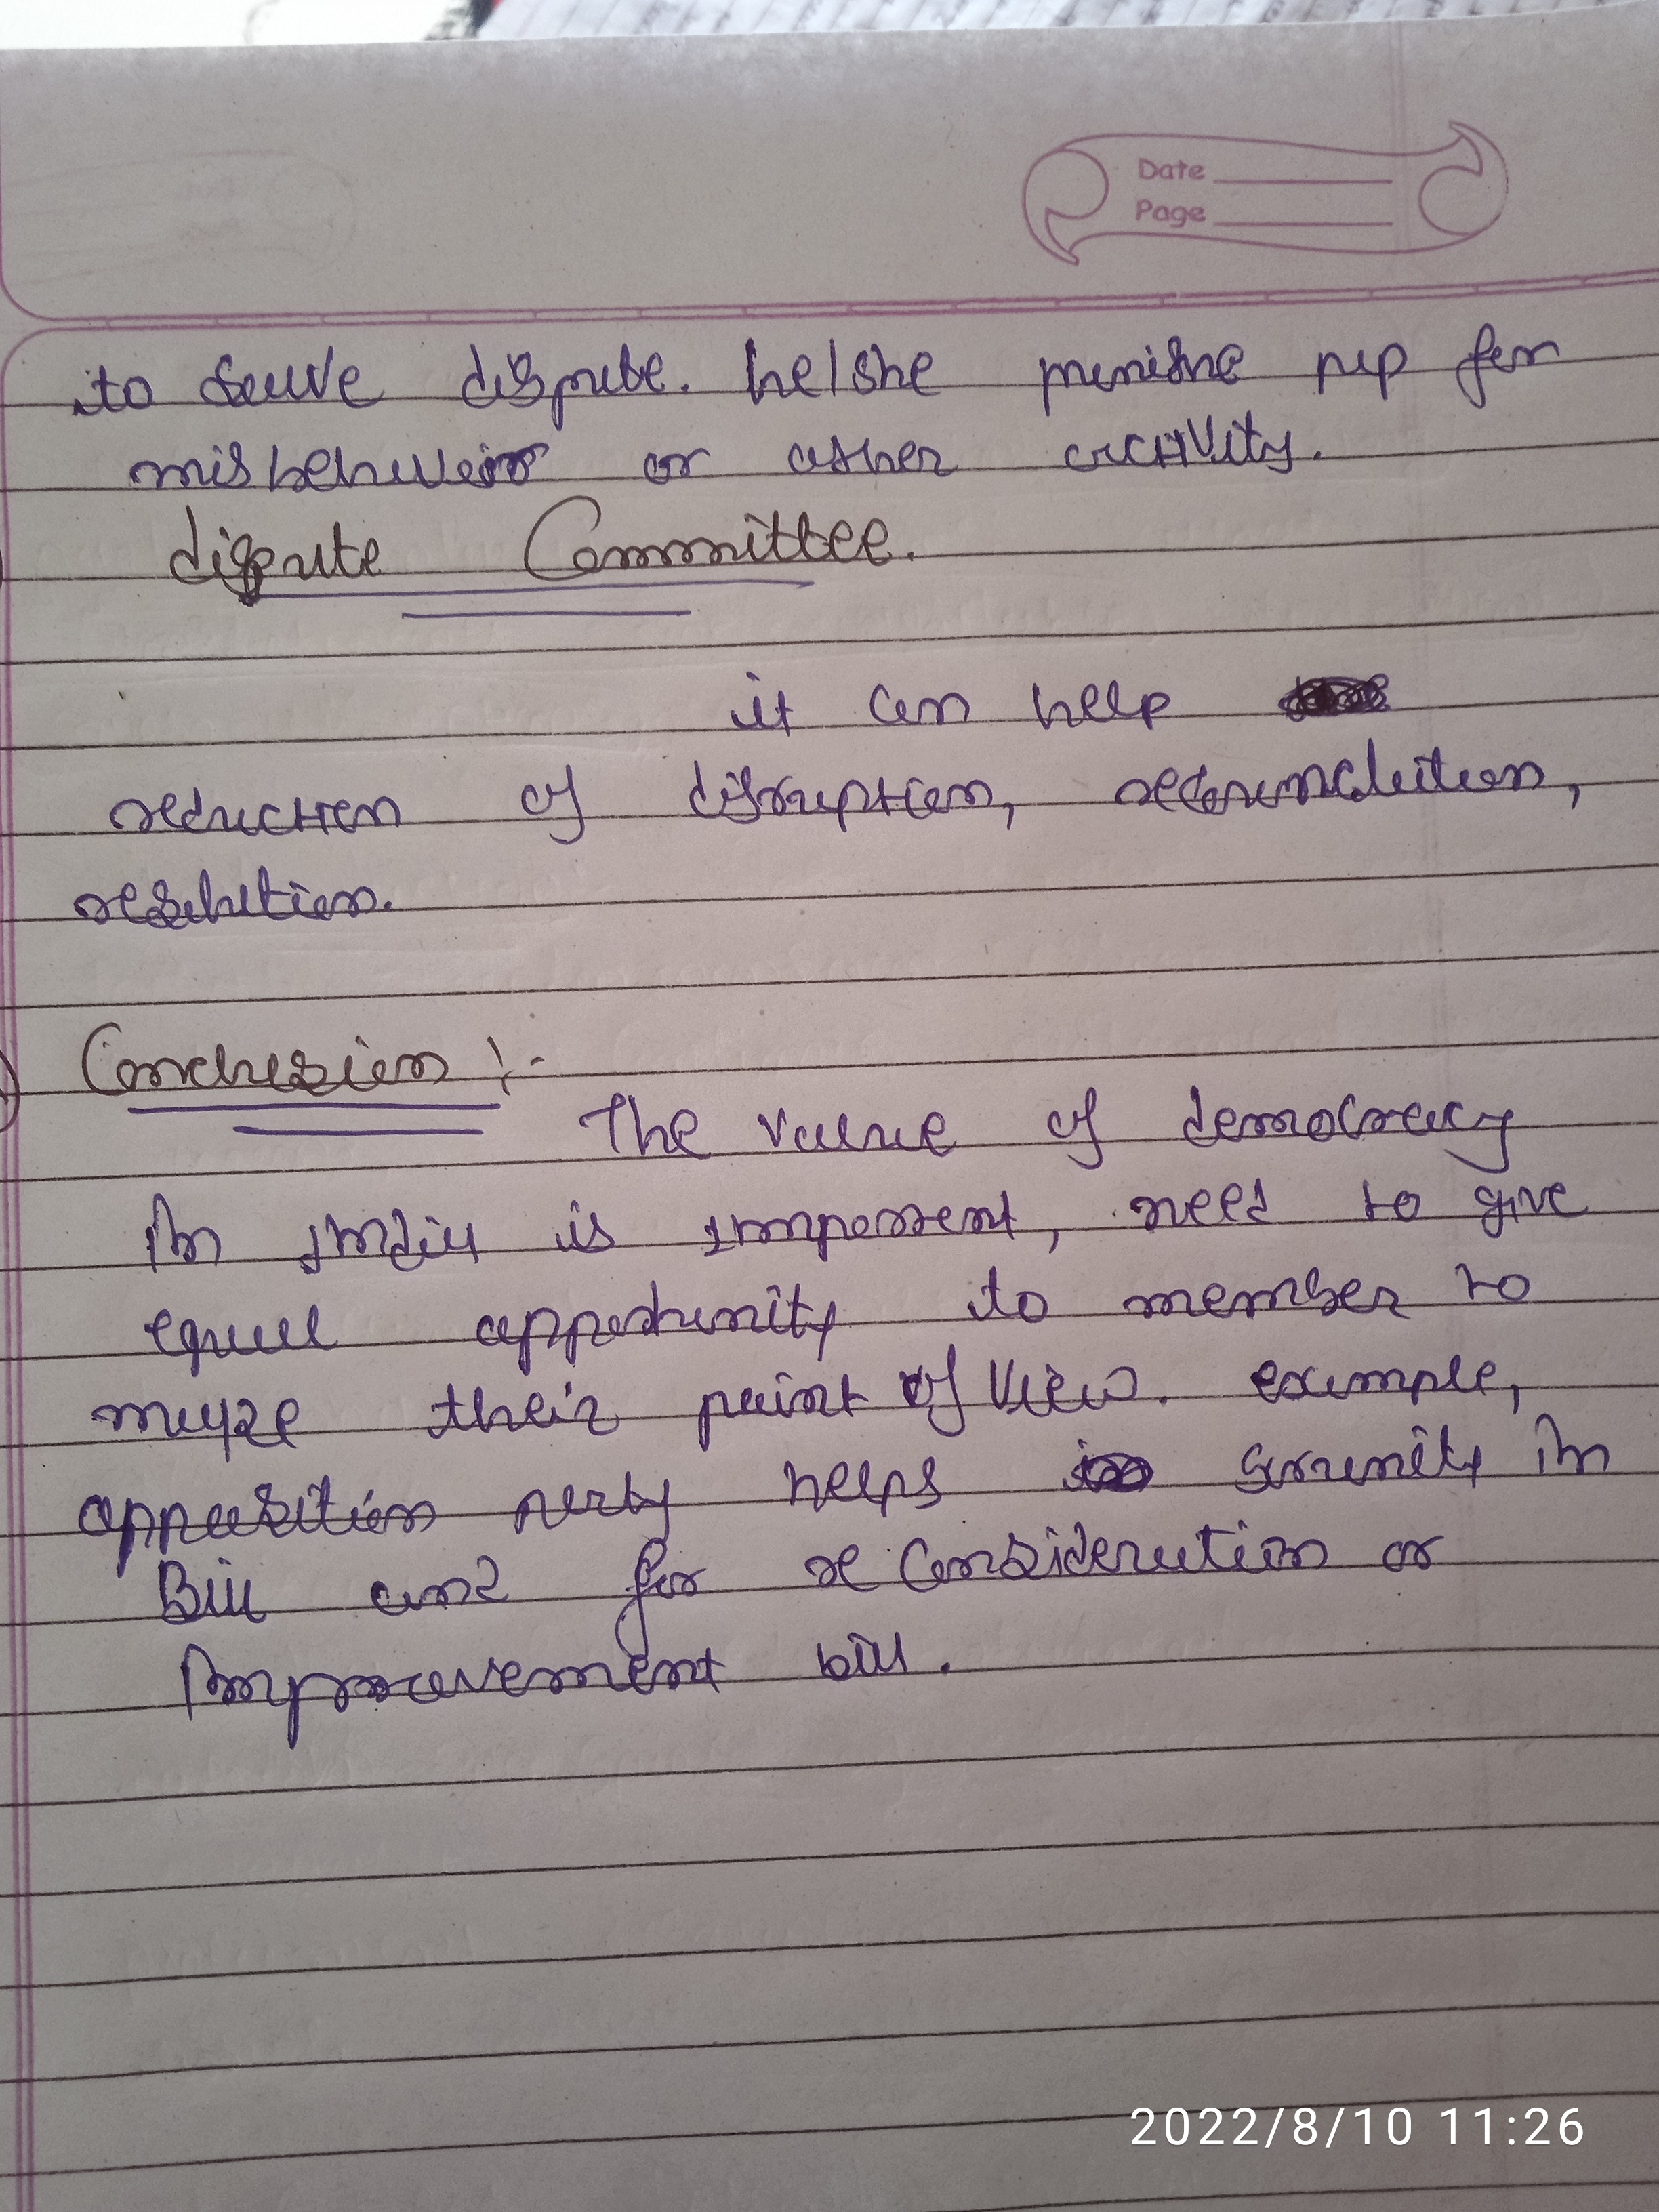 Date
Page
to solve dispute. he/she punishe mp for
misbehaveior or other activity.
dispute Committee.
it can help
reduction of disruption,
resolution.
Conclusion :-
The value of democracy
In India is important, need to give
equal opportunity to member to
make their point of view. example,
opposition party helps in
Bill and for re Consideration or
Improvement bill.
2022/8/10 11:26